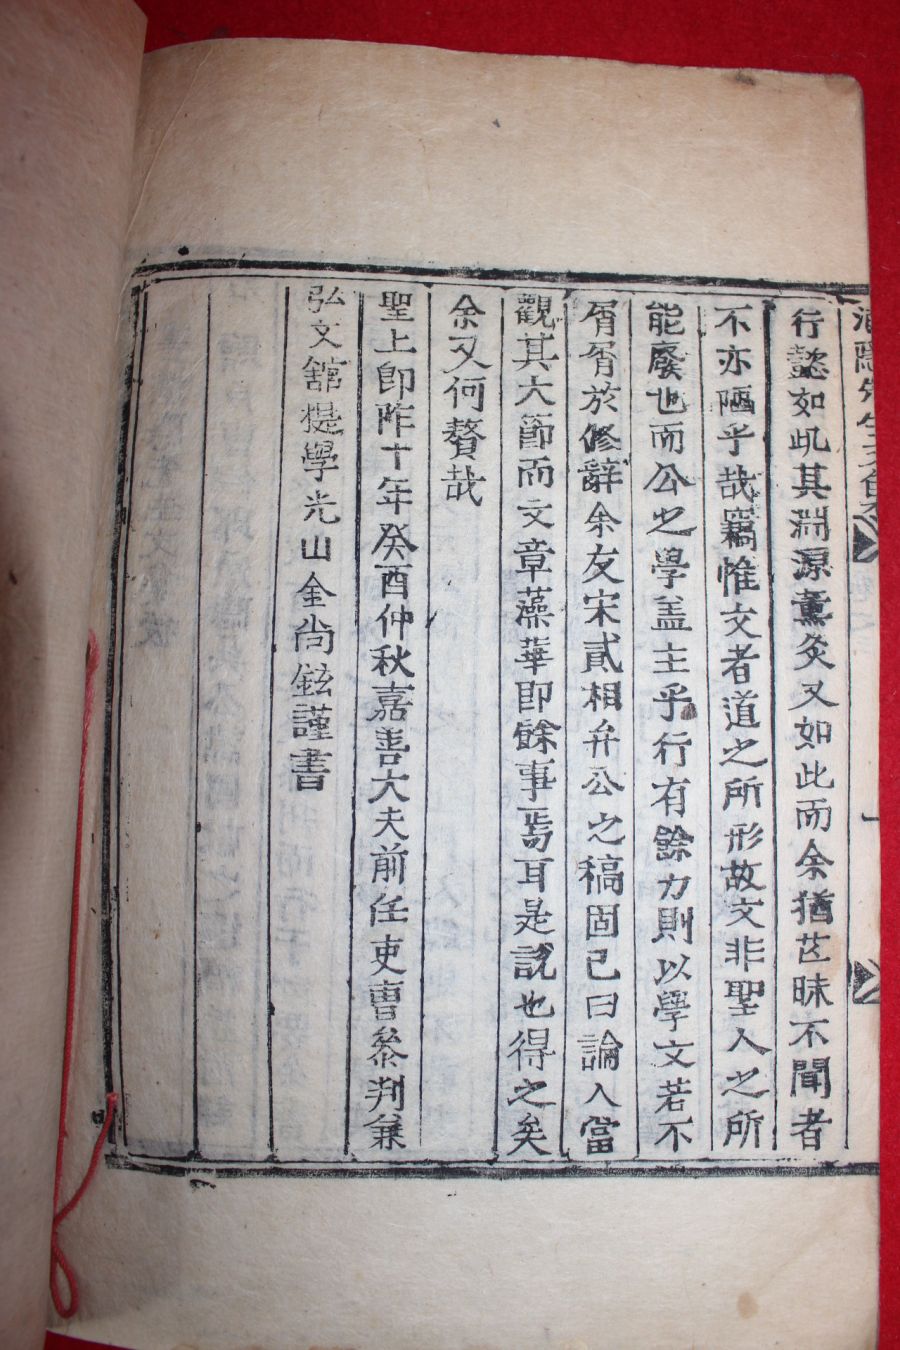 行懿如此其淵源薰炙又如此而余猶茫昧不聞者
不亦陋乎哉竊惟文者道之所形故文非聖人之所
能廢也而公之學盖主乎行有餘力則以學文若不
屑屑於修辭余友宋貳相弁公之稿固已曰論人當
觀其大節而文章藻華即餘事焉耳是說也得之矣
余又何贅哉
聖上卽阼十年癸酉仲秋嘉善大夫前任吏曹叅判兼
弘文館提學光山金尙鉉謹書
隱先生文集
一